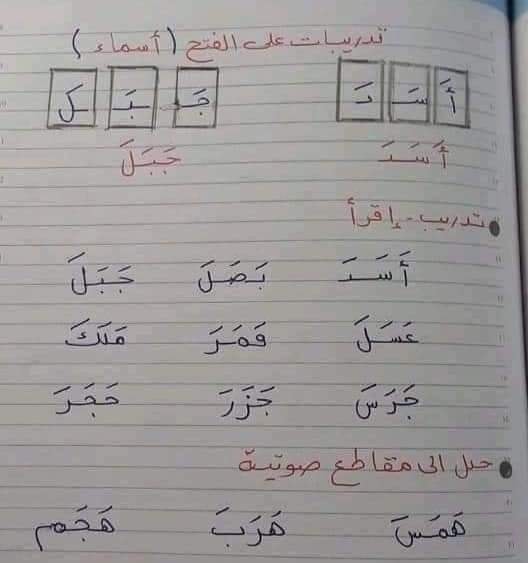 تدريبات على الفتح (أسماء)
أَ سَـ دَ جَـ بَـ لَ
أَسَدَ جَبَلَ
تدريب - إقرأ
أَسَدَ بَصَلَ جَبَلَ
عَسَلَ قَمَرَ مَلَكَ
جَرَسَ جَزَرَ حَجَرَ
حلل الى مقاطع صوتية
هَمَسَ هَرَبَ هَجَم